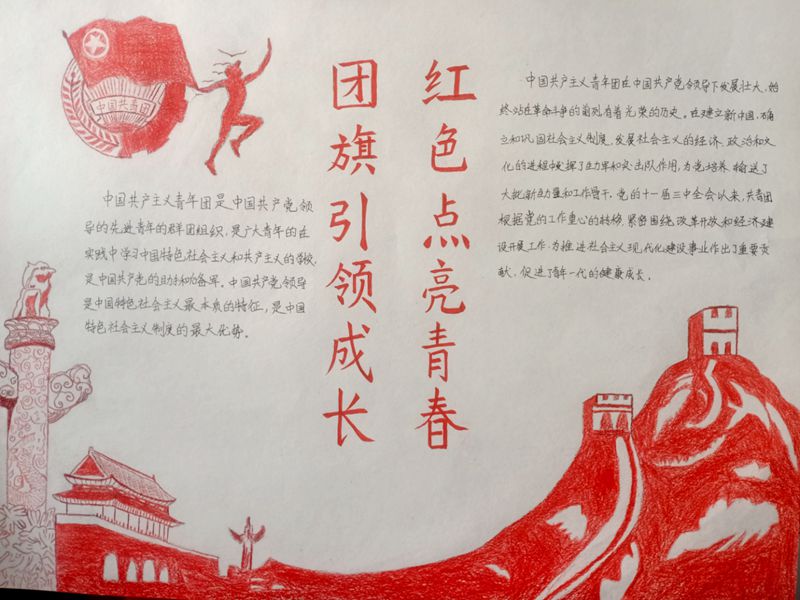 中国共青团
红色点亮青春
团旗引领成长
中国共产主义青年团是中国共产党领
导的先进青年的群团组织,是广大青年的在
实践中学习中国特色社会主义和共产主义的学校,
是中国共产党的助手和后备军。中国共产党领导
是中国特色社会主义最本质的特征,是中国
特色社会主义制度的最大优势。
中国共产主义青年团在中国共产党领导下发展壮大,始
终站在革命斗争的前列,有着光荣的历史。在建立新中国,确
立和巩固社会主义制度,发展社会主义的经济、政治和文
化的进程中发挥了生力军和突击队作用,为党培养、输送了
大批新生力量和工作骨干。党的十一届三中全会以来,共青团
根据党的工作重心的转移,紧密围绕改革开放和经济建
设开展工作,为推进社会主义现代化建设事业作出了重要贡
献,促进了青年一代的健康成长。